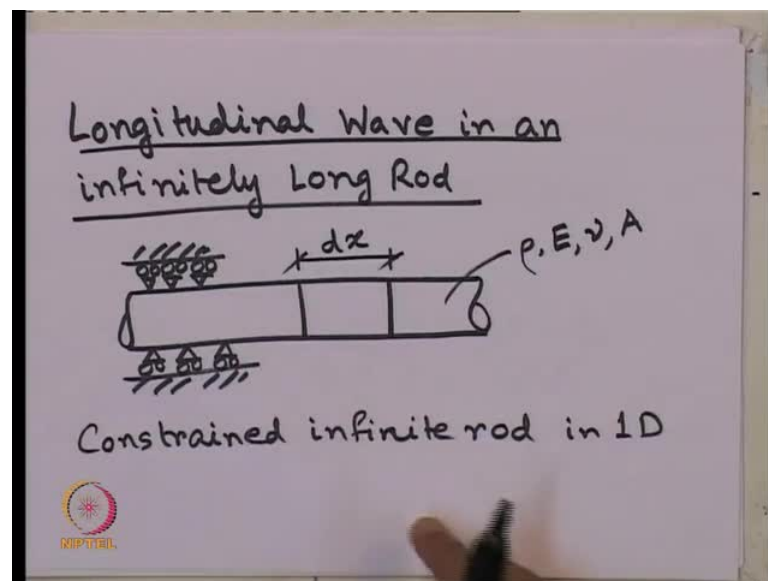 Longitudinal Wave in an
infinitely Long Rod
dx
ρ, E, ν, A
Constrained infinite rod in 1D
NPTEL